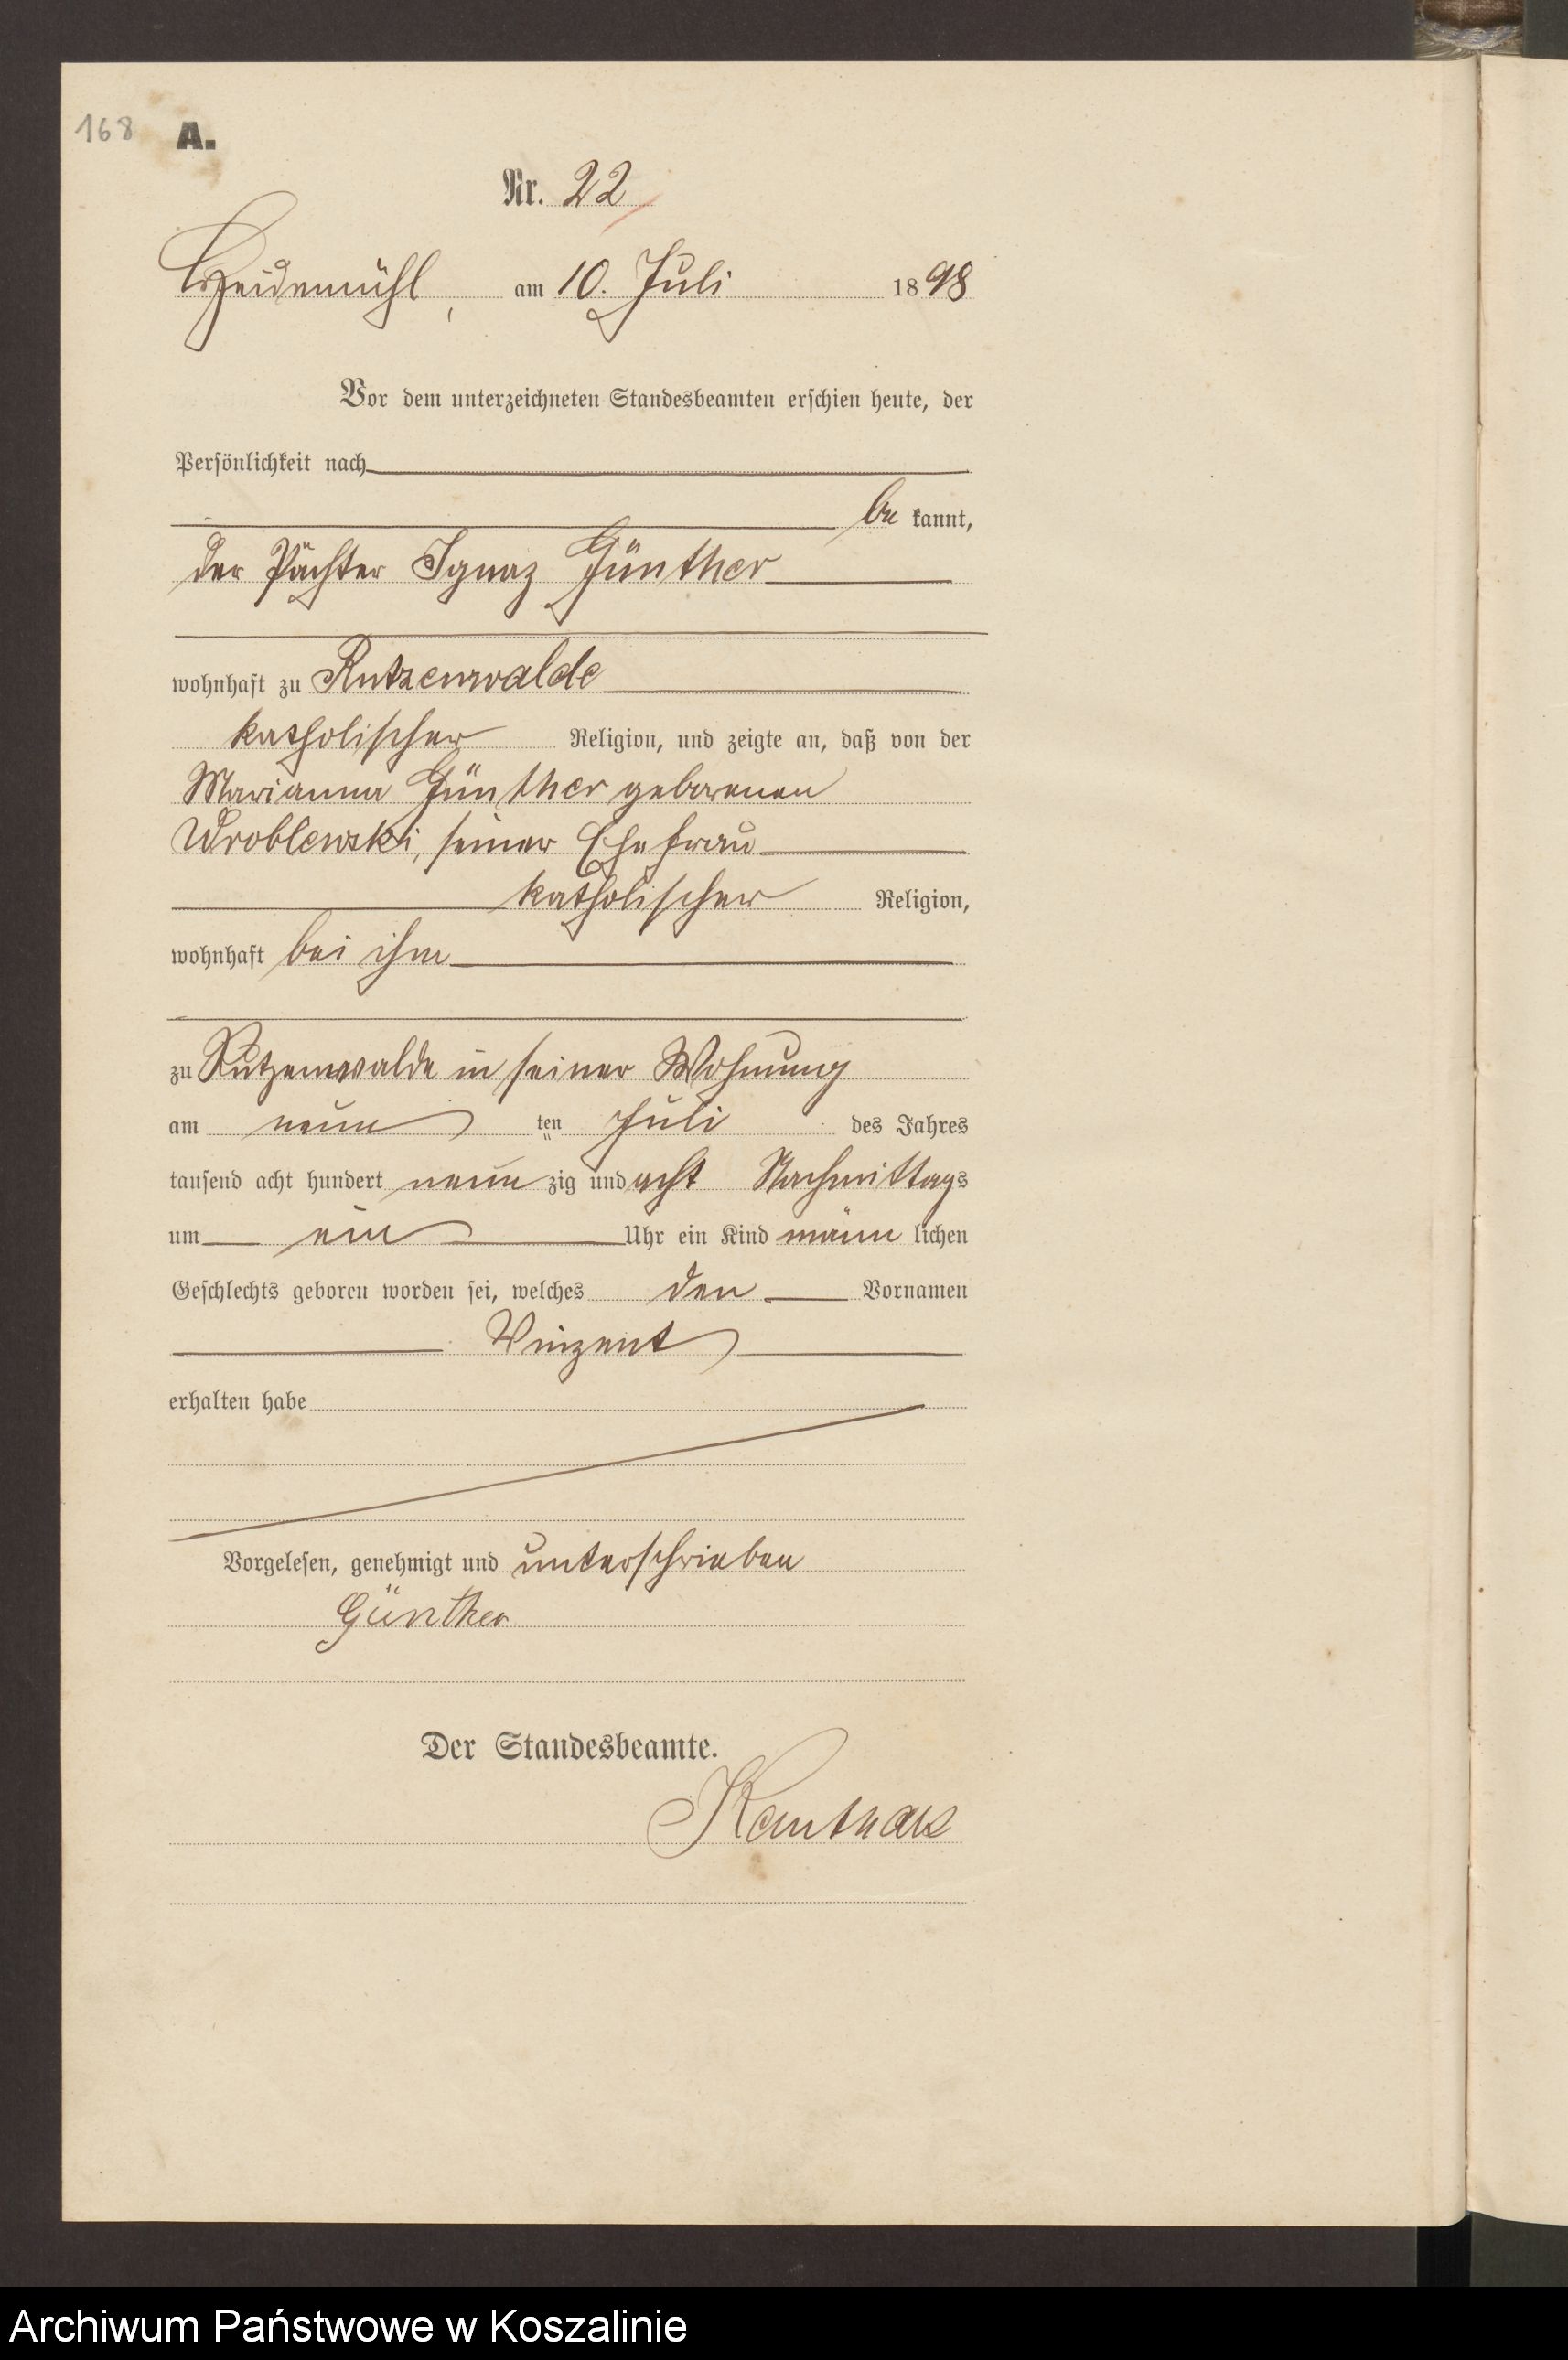 168 A.
Nr. 22
Heidemühl, am 10. Juli 1898
Vor dem unterzeichneten Standesbeamten erschien heute, der
Persönlichkeit nach
be kannt,
der Pächter Ignaz Günther
wohnhaft zu Rutzenwalde
katholischer Religion, und zeigte an, daß von der
Marianna Günther geborenen
Wroblewski, seiner Ehefrau
katholischer Religion,
wohnhaft bei ihm
zu Rutzenwalde in seiner Wohnung
am neun ten Juli des Jahres
tausend acht hundert neun zig und acht Nachmittags
um ein Uhr ein Kind männ lichen
Geschlechts geboren worden sei, welches den Vornamen
Vinzent
erhalten habe
Vorgelesen, genehmigt und unterschrieben
Günther
Der Standesbeamte.
Archiwum Państwowe w Koszalinie